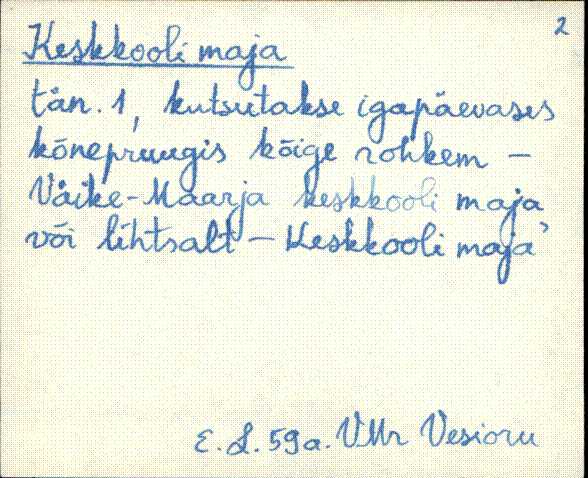 2
Keskkooli maja
tän. 1, kutsutakse igapäevases
kõnepruugis kõige rohkem –
Väike-Maarja keskkooli maja,
või lihtsalt – Keskkooli maja
E. L. 59a. VMr Vesioru